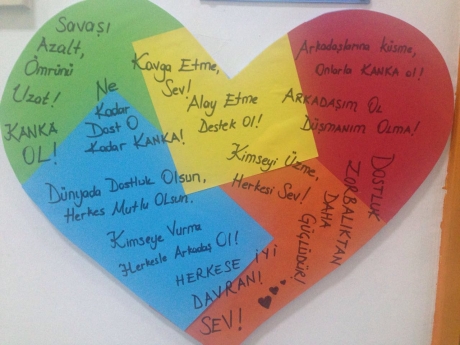 Savaşı
Azalt,
Ömrünü
Uzat!
KANKA
OL!
Ne
Kadar
Dost O
Kadar KANKA!
Kavga Etme,
Sev!
Alay Etme
Destek Ol!
Arkadaşlarına küsme,
Onlarla KANKA ol!
ARKADAŞIM OL
DÜŞMANIM OLMA!
Kimseyi Üzme,
Herkesi Sev!
DOSTLUK
ZORBALIKTAN
DAHA
GÜÇLÜDÜR!
Dünyada Dostluk Olsun,
Herkes Mutlu OLSUN.
Kimseye Vurma
Herkesle Arkadaş Ol!
HERKESE İYİ
DAVRAN!
SEV!